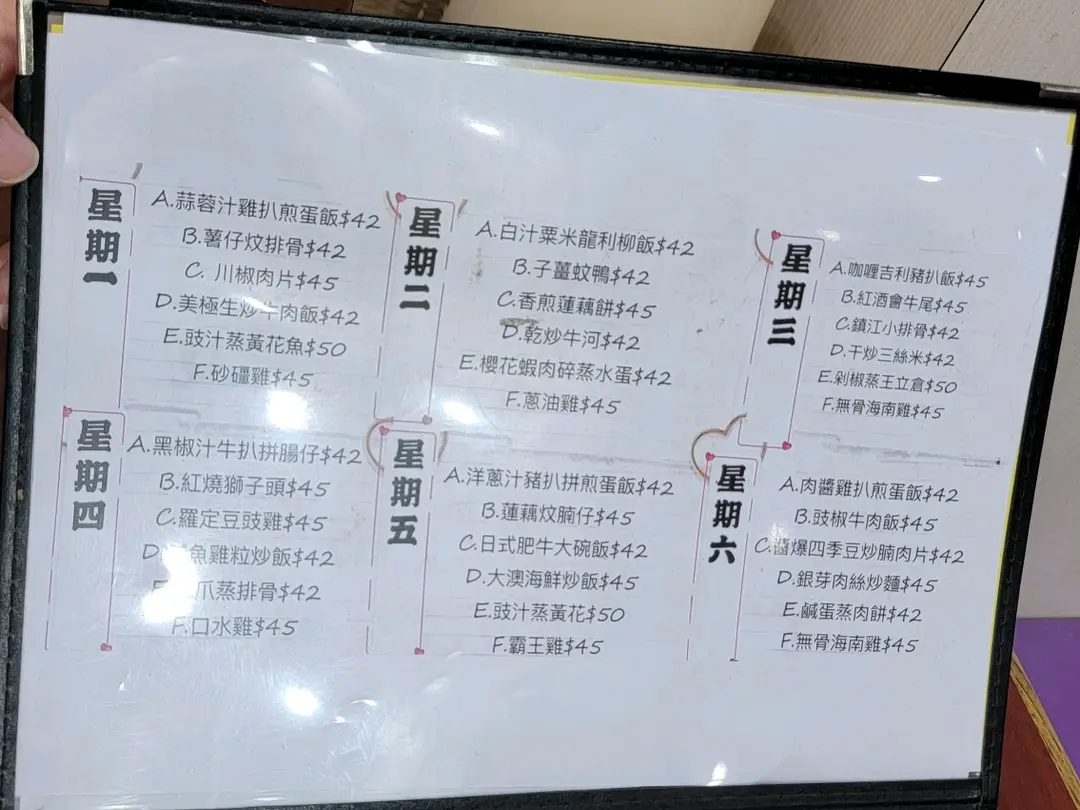 星期一
A.蒜蓉汁雞扒煎蛋飯$42
B.薯仔炆排骨$42
C. 川椒肉片$45
D.美極生炒牛肉飯$42
E.豉汁蒸黃花魚$50
F.砂礓雞$45
星期二
A.白汁粟米龍利柳飯$42
B.子薑蚊鴨$42
C.香煎蓮藕餅$45
D.乾炒牛河$42
E.櫻花蝦肉碎蒸水蛋$42
F.蔥油雞$45
星期三
A.咖喱吉利豬扒飯$45
B.紅酒會牛尾$45
C.鎮江小排骨$42
D.干炒三絲米$42
E.剁椒蒸王立倉$50
F.無骨海南雞$45
星期四
A.黑椒汁牛扒拼腸仔$42
B.紅燒獅子頭$45
C.羅定豆豉雞$45
D.魚雞粒炒飯$42
爪蒸排骨$42
F.口水雞$45
星期五
A.洋蔥汁豬扒拼煎蛋飯$42
B.蓮藕炆腩仔$45
C.日式肥牛大碗飯$42
D.大澳海鮮炒飯$45
E.豉汁蒸黃花$50
F.霸王雞$45
星期六
A.肉醬雞扒煎蛋飯$42
B.豉椒牛肉飯$45
C.醬爆四季豆炒腩肉片$42
D.銀芽肉絲炒麵$45
E.鹹蛋蒸肉餅$42
F.無骨海南雞$45